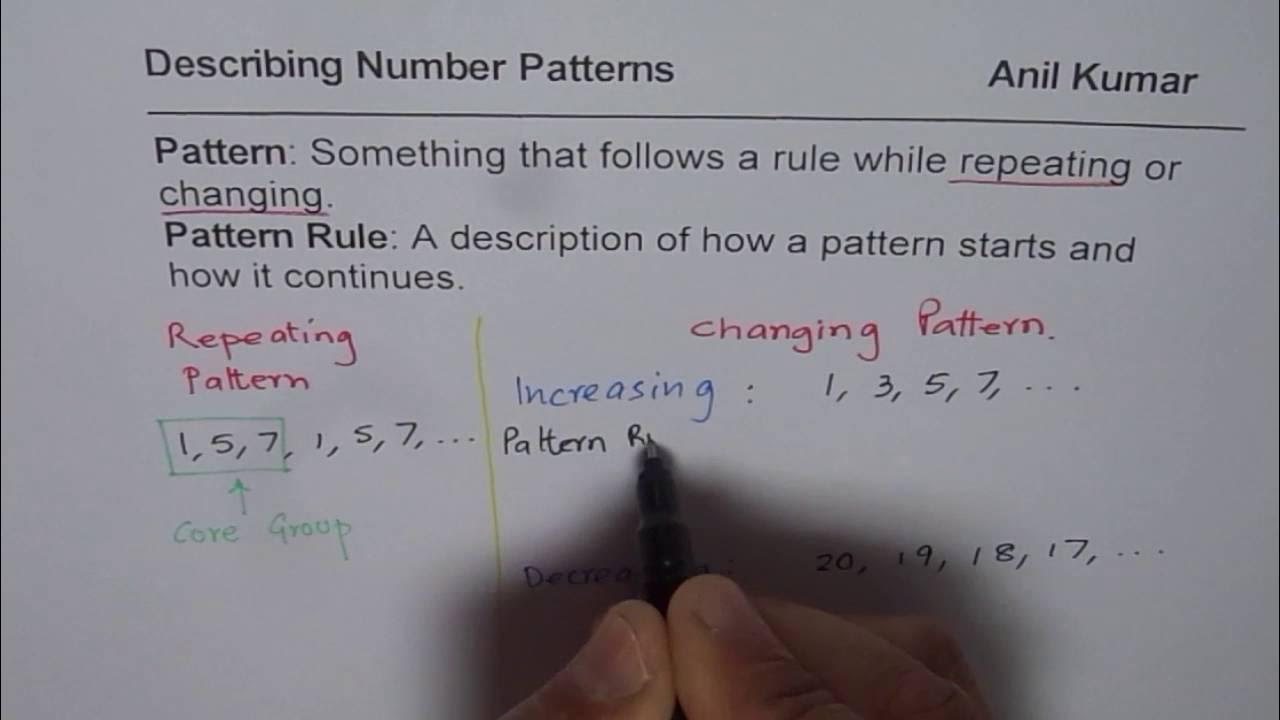 Describing Number Patterns Anil Kumar
Pattern: Something that follows a rule while repeating or
changing.
Pattern Rule: A description of how a pattern starts and
how it continues.
Repeating
Pattern
1, 5, 7, 1, 5, 7, ...
Core Group
Changing Pattern.
Increasing : 1, 3, 5, 7, ...
Pattern
20, 19, 18, 17, ...